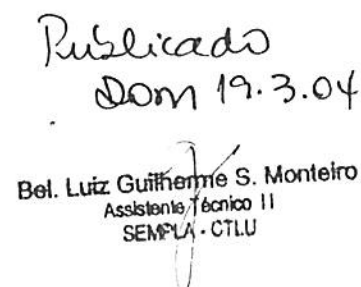 Publicado
Dom 19.3.04
Bel. Luiz Guilherme S. Monteiro
Assistente Técnico II
SEMPLA - CTLU